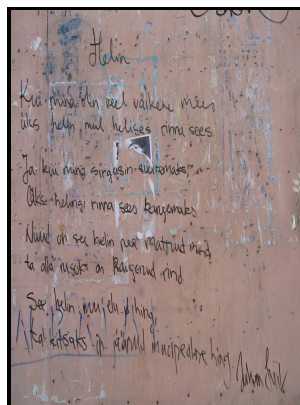 Helin
Kui mina olin veel väikene mees,
üks helin mul helises rinna sees.
Ja kui mina sirgusin suuremaks,
läks helingi rinna sees kangemaks.
Nüüd on see helin pea matnud mind,
ta all rusuks on kangenud rind.
See helin mu elu hing,
on jäänud maapealne ring